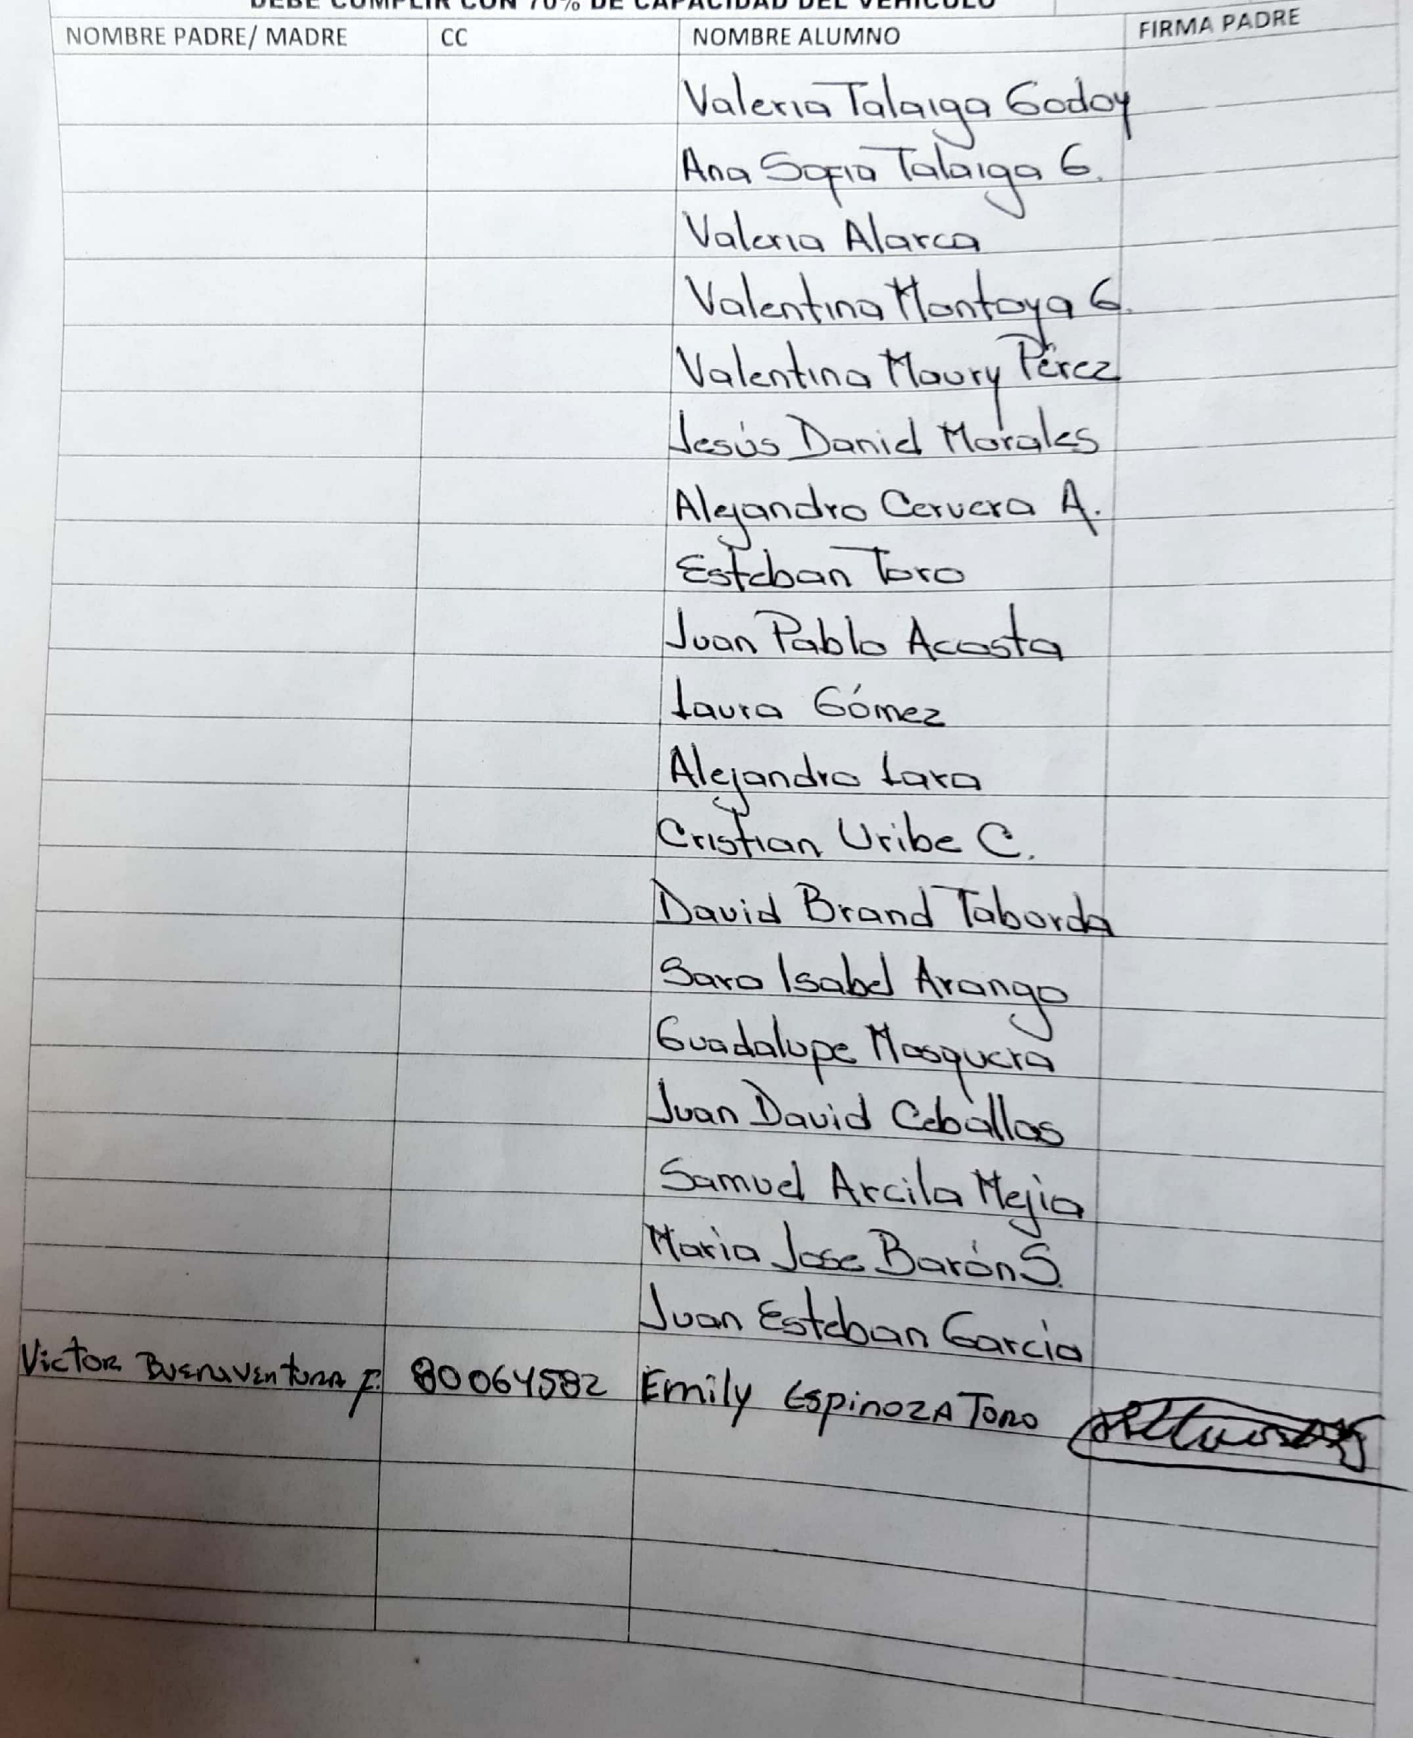 DEBE CUMPLIR CON 70% DE CAPACIDAD DEL VEHICULO
NOMBRE PADRE/ MADRE CC NOMBRE ALUMNO FIRMA PADRE
Valeria Talaiga Godoy
Ana Sofia Talaiga G.
Valeria Alarca
Valentina Montoya G.
Valentina Maury Pérez
Jesús Daniel Morales
Alejandro Cervera A.
Esteban Toro
Juan Pablo Acosta
Laura Gómez
Alejandro Lara
Cristian Uribe C.
David Brand Taborda
Sara Isabel Arango
Guadalupe Mosquera
Juan David Ceballos
Samuel Arcila Mejia
Maria Jose Barón S.
Juan Esteban Garcia
Victor Buenaventura F. 80064582 Emily Espinoza Toro